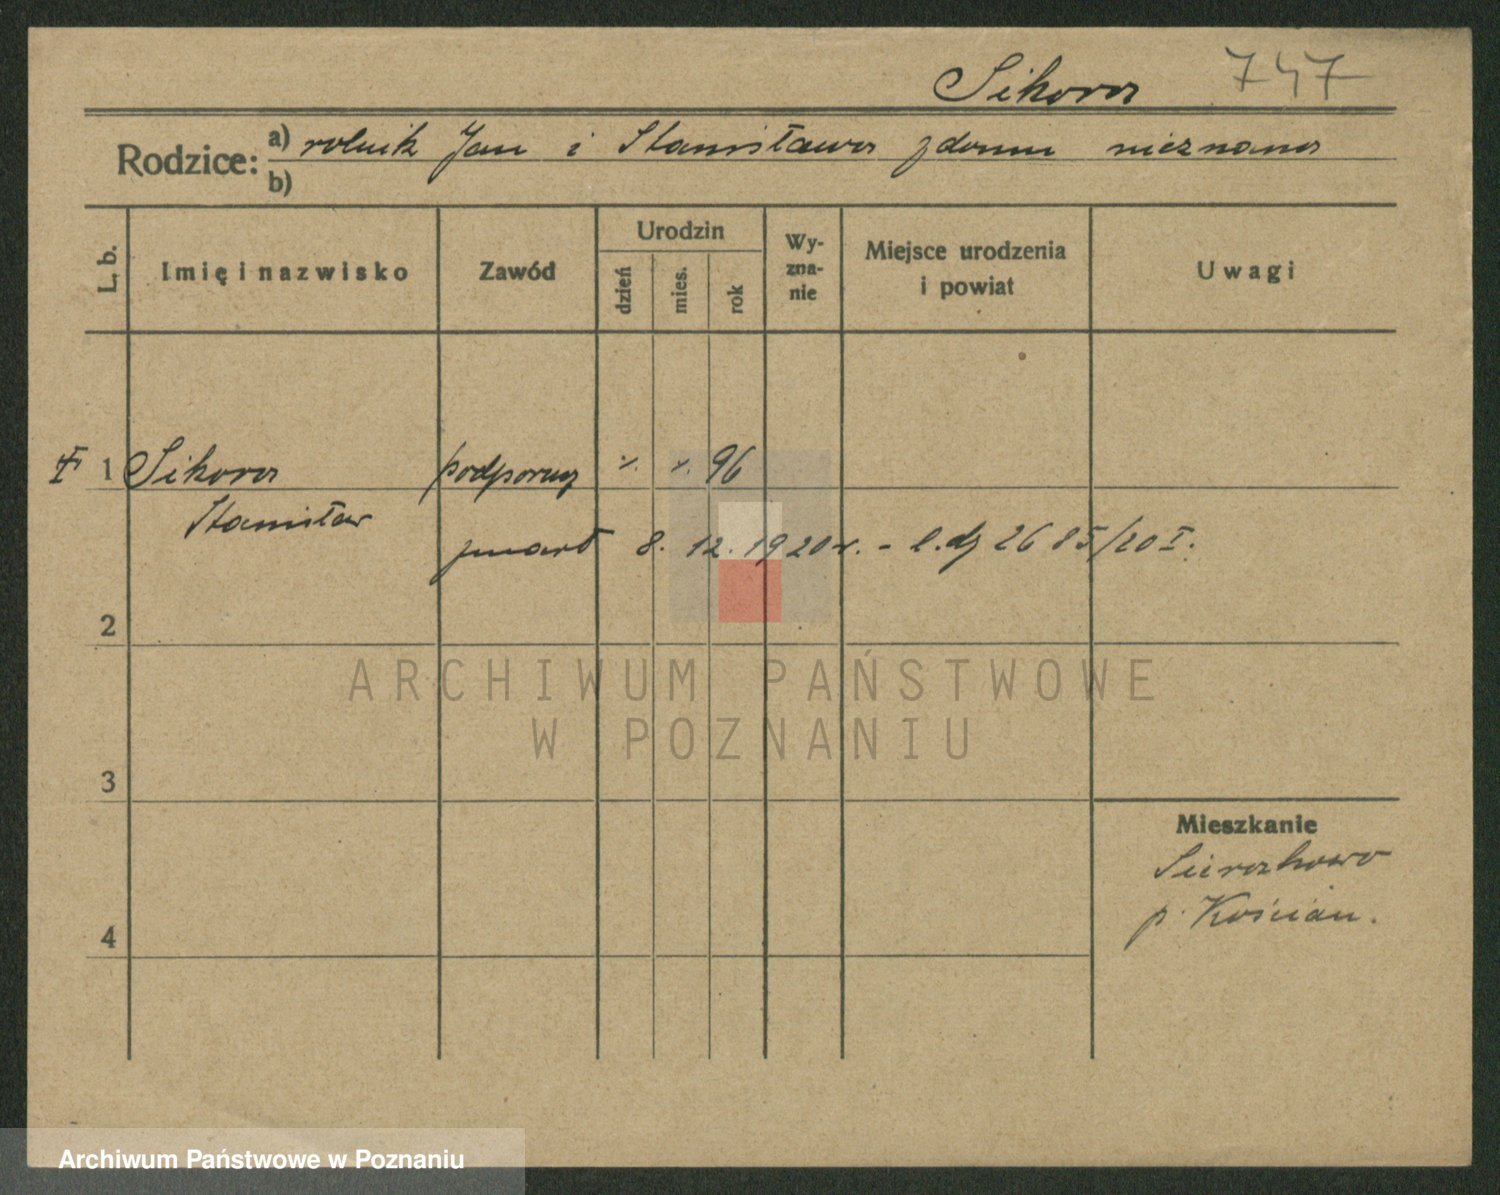 Sikora 747
Rodzice: a) rolnik Jan i Stanisława z domu nieznana
b)
L. b. Imię i nazwisko Zawód Urodzin dzień mies. rok Wyznanie Miejsce urodzenia i powiat Uwagi
1 Sikora podporucz ./. ./. 96
Stanisław
zmarł 8. 12. 1920 r. - l. dz 2685/20 I.
2
ARCHIWUM PAŃSTWOWE
W POZNANIU
3
Mieszkanie
Sierakowo
p. Kościan.
4
Archiwum Państwowe w Poznaniu